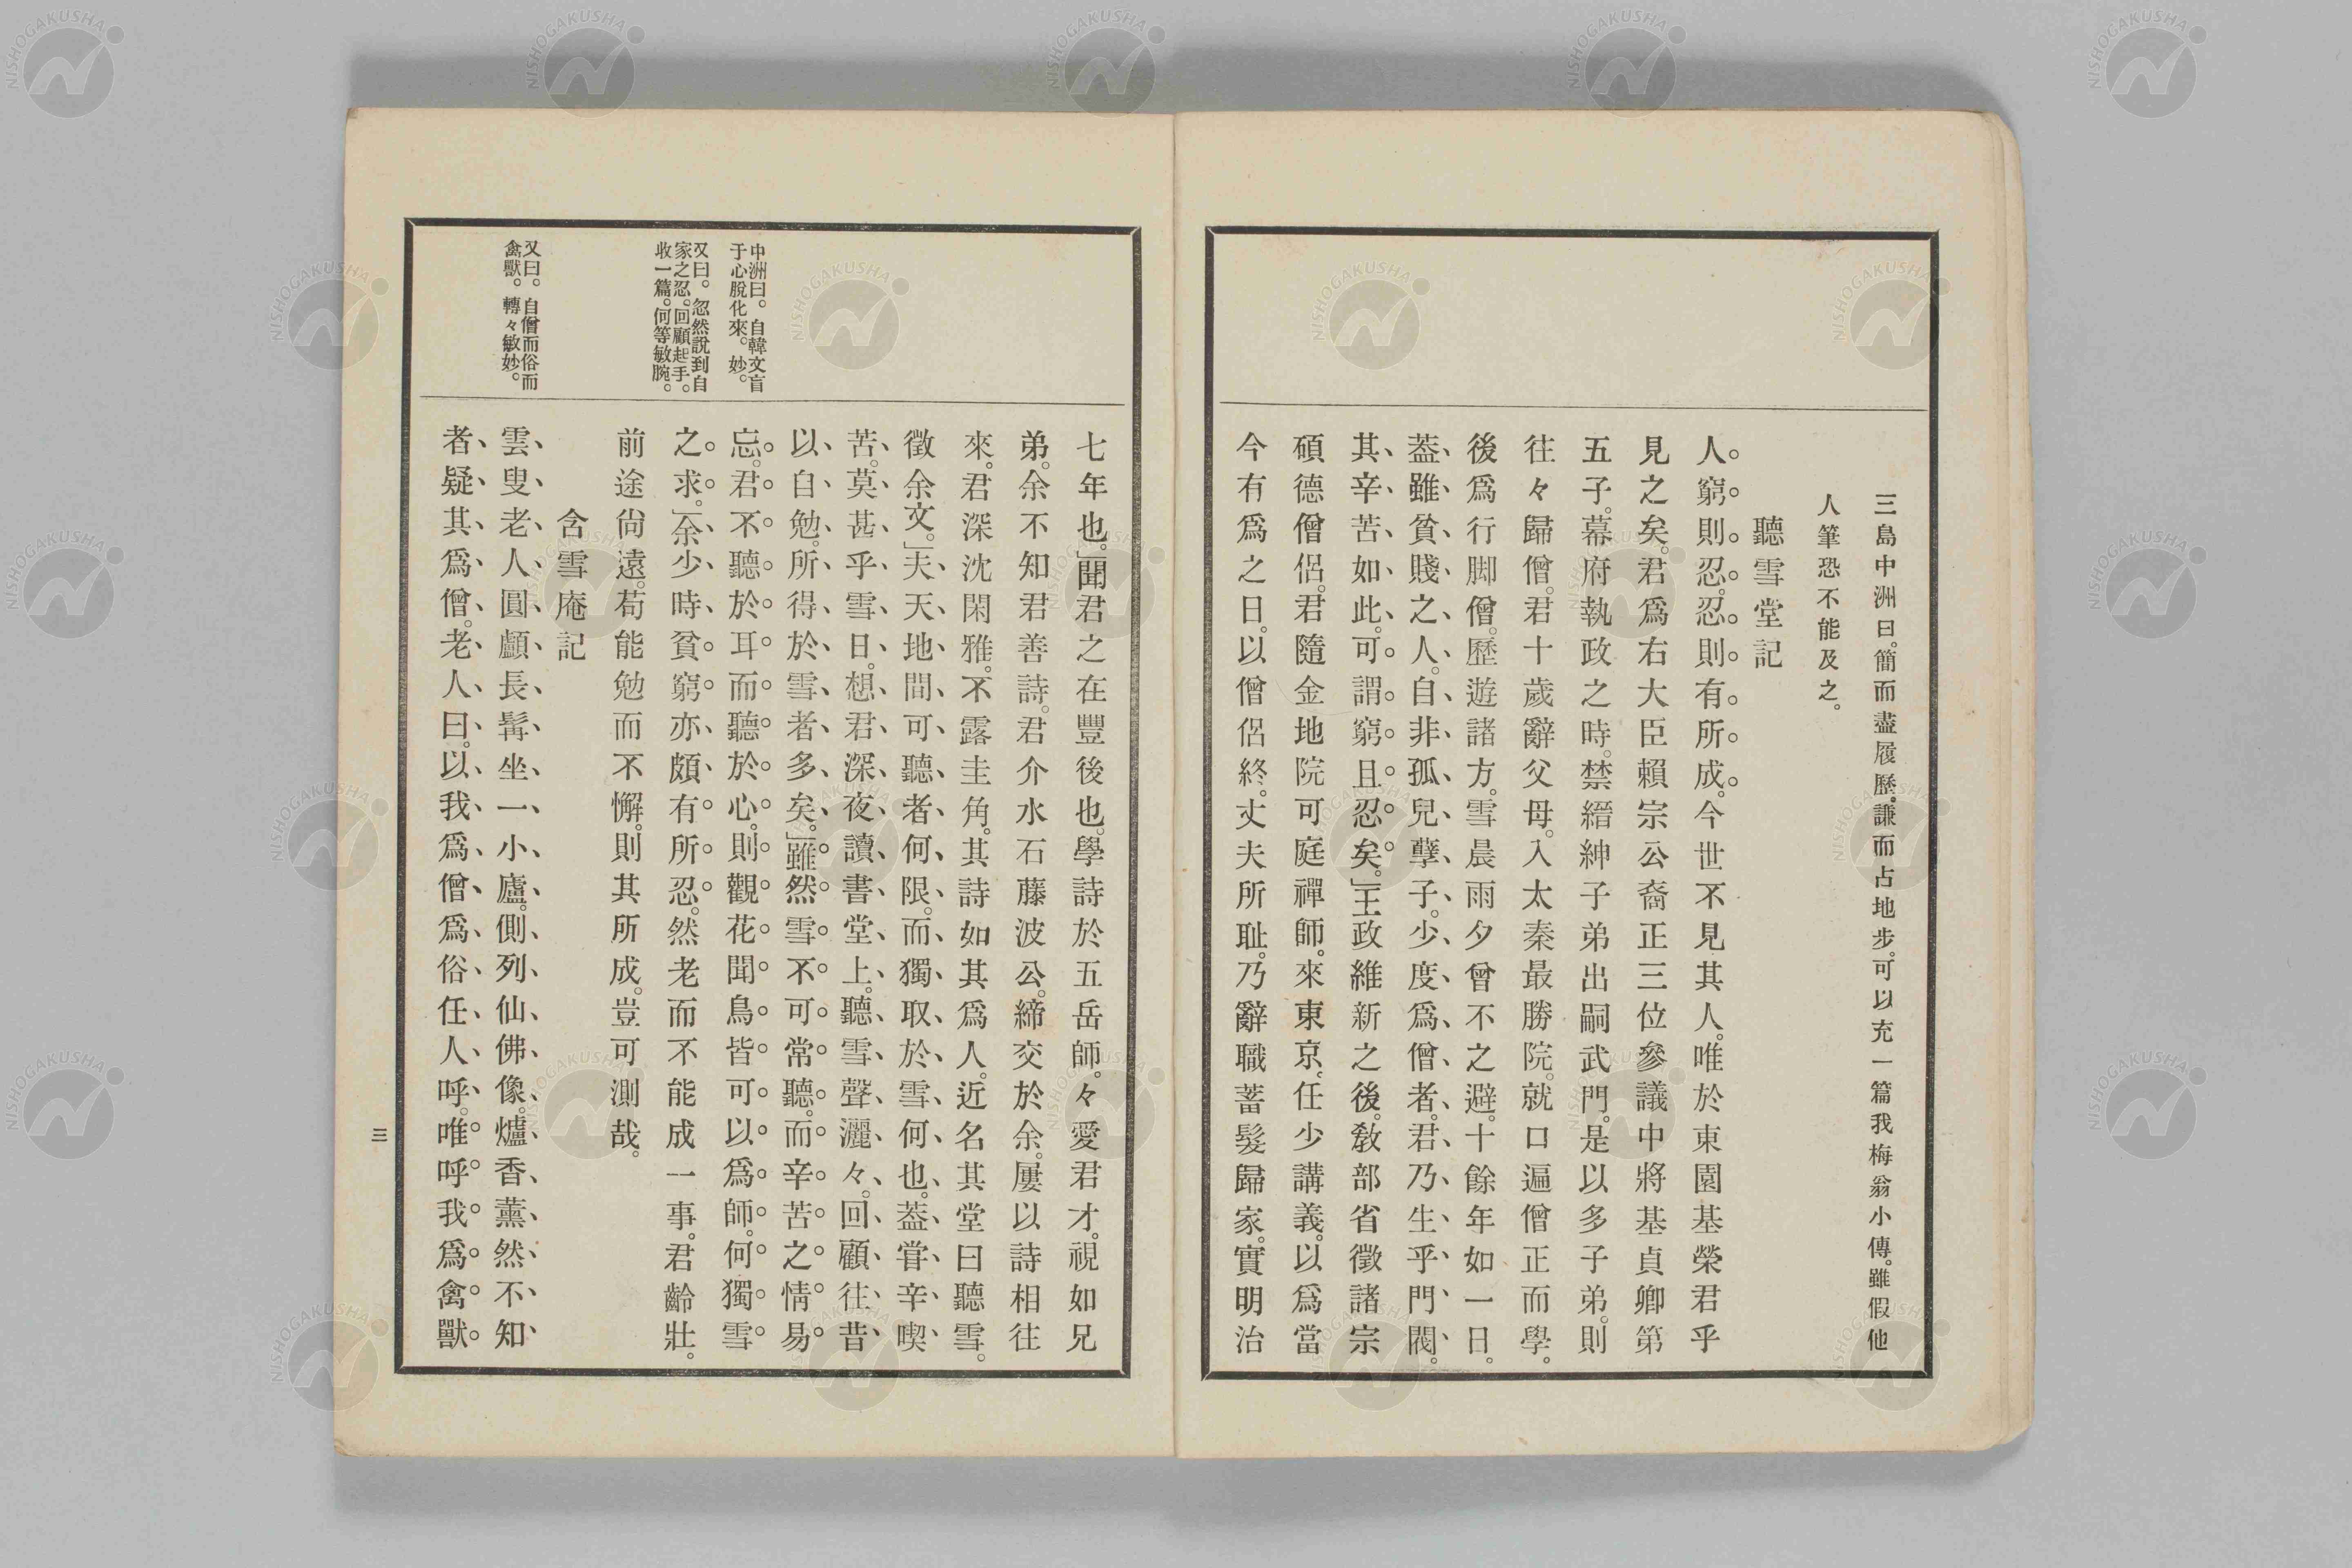 三島中洲曰。簡而盡履歷。謙而占地步。可以充一篇我梅翁小傳。雖假他
人筆恐不能及之。
聽雪堂記
人。窮則忍。忍則有所成。今世不見其人。唯於東園基榮君乎
見之矣。君爲右大臣賴宗公裔正三位參議中將基貞卿第
五子。幕府執政之時。禁縉紳子弟出嗣武門。是以多子弟。則
往々歸僧。君十歲辭父母。入太秦最勝院。就口遍僧正而學。
後爲行脚僧。歷遊諸方。雪晨雨夕曾不之避。十餘年如一日。
葢雖貧賤之人。自非孤兒孽子。少度爲僧者。君乃生乎門閥。
其辛苦如此。可謂窮且忍矣。」王政維新之後。敎部省徵諸宗
碩德僧侶。君隨金地院可庭禪師。來東京。任少講義。以爲當
今有爲之日。以僧侶終。丈夫所耻。乃辭職蓄髮歸家。實明治
七年也。」聞君之在豐後也。學詩於五岳師。々愛君才。視如兄
弟。余不知君善詩。君介水石藤波公。締交於余。屢以詩相往
來。君深沈閑雅。不露圭角。其詩如其爲人。近名其堂曰聽雪。
徵余文。」夫天地間可聽者何限。而獨取於雪何也。葢嘗辛喫
苦。莫甚乎雪日。想君深夜讀書堂上。聽雪聲灑々。回顧往昔
以自勉。所得於雪者多矣。」雖然雪不可常聽。而辛苦之情易
忘。君不聽於耳而聽於心。則觀花聞鳥皆可以爲師。何獨雪
之求。」余少時貧窮亦頗有所忍。然老而不能成一事。君齡壯。
前途尙遠。苟能勉而不懈。則其所成。豈可測哉。
含雪庵記
雲叟老人圓顱長髯坐一小廬。側列仙佛像。爐香薰然不知
者疑其爲僧。老人曰。以我爲僧爲俗任人呼。唯呼我爲禽獸
中洲曰。自韓文盲
于心脫化來。妙。
又曰。忽然說到自
家之忍。回顧起手。
收一篇。何等敏腕。
又曰。自僧而俗而
禽獸。轉々敏妙。
三
NISHOGAKUSHA